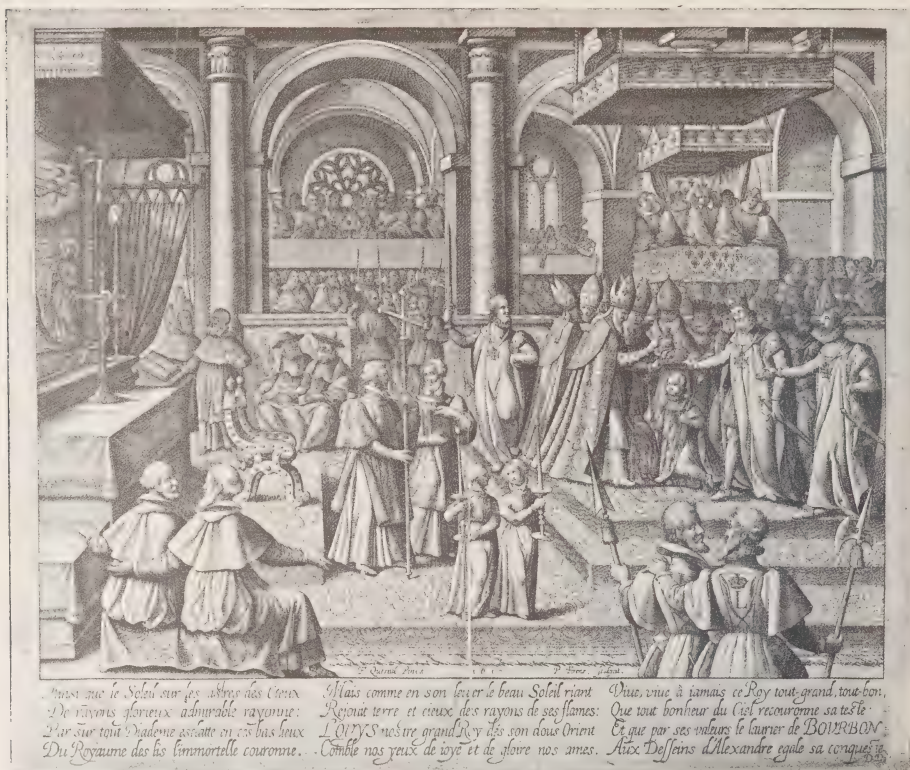 F. Quesnel Pinxit
P. Firens sculpsit
Ainsi que le Soleil sur les astres des Cieux
De rayons glorieux admirable rayonne:
Par sur tout Diademe esclatte en ces bas lieux
Du Royaume des lis l'immortelle couronne.
Mais comme en son lever le beau Soleil riant
Rejouit terre et cieux des rayons de ses flames:
LOUYS nostre grand Roy dés son dous Orient
Comble nos yeux de joye et de gloire nos ames.
Vive, vive à jamais ce Roy tout-grand, tout-bon,
Que tout bonheur du Ciel recouronne sa teste
Et que par ses valeurs le laurier de BOURBON
Aux Desseins d'Alexandre egale sa conqueste